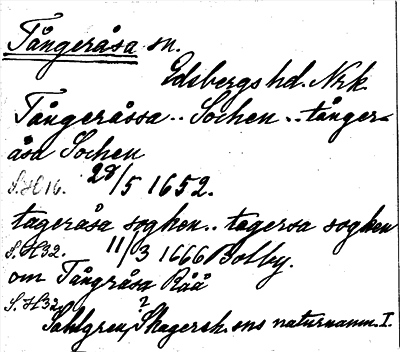 Tångeråsa sn.
Edsbergs hd. Nrk.
Tångeråssa .. Sochen .. tånger-
åsa Sochen
S. H 16. 28/5 1652.
tageråsa soghen .. tagersa soghen
S. H 32. 11/3 1666 Bolby.
om Tångråsa Råå
S. H 32
Sahlgren, Skagersh. sns naturnamn. I.